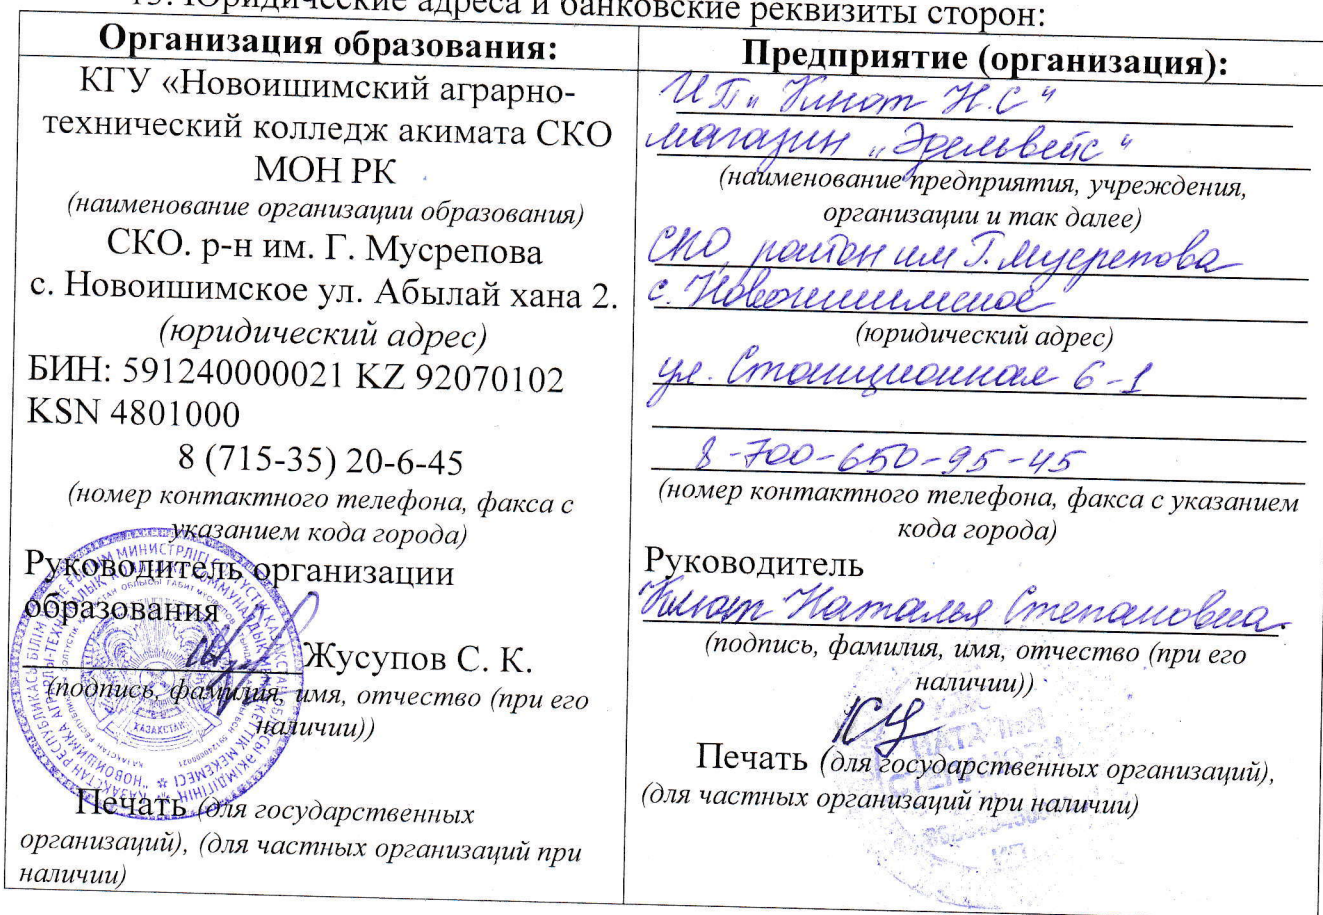 15. Юридические адреса и банковские реквизиты сторон:
Организация образования:
КГУ «Новоишимский аграрно-
технический колледж акимата СКО
МОН РК
(наименование организации образования)
СКО. р-н им. Г. Мусрепова
с. Новоишимское ул. Абылай хана 2.
(юридический адрес)
БИН: 591240000021 KZ 92070102
KSN 4801000
8 (715-35) 20-6-45
(номер контактного телефона, факса с
указанием кода города)
Руководитель организации
образования
Жусупов С. К.
(подпись, фамилия, имя, отчество (при его
наличии))
Печать (для государственных
организаций), (для частных организаций при
наличии)
Предприятие (организация):
ИП „ Н.С"
магазин „Эдельвейс"
(наименование предприятия, учреждения,
организации и так далее)
СКО, район им Г. Мусрепова
с. Новоишимское
(юридический адрес)
ул. Станционная 6-1
8-700-650-95-45
(номер контактного телефона, факса с указанием
кода города)
Руководитель
Наталья Степановна.
(подпись, фамилия, имя, отчество (при его
наличии))
Печать (для государственных организаций),
(для частных организаций при наличии)
НАТАЛЬЯ